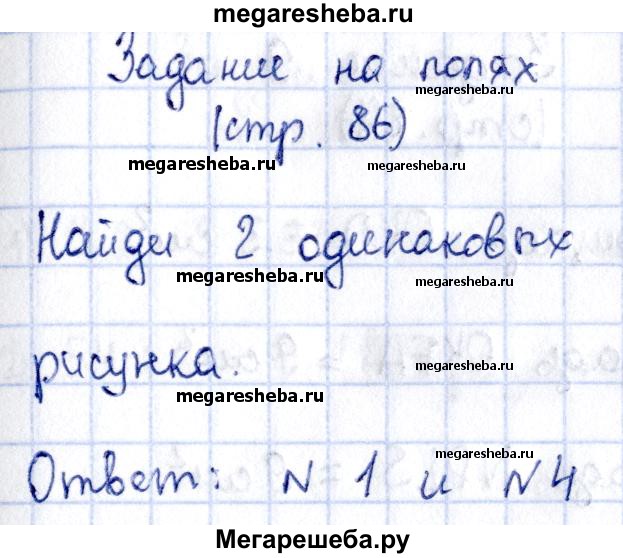 megaresheba.ru
Задание на полях
megaresheba.ru
(стр. 86)
megaresheba.ru megaresheba.ru
Найди 2 одинаковых
megaresheba.ru megaresheba.ru
рисунка.
megaresheba.ru megaresheba.ru
megaresheba.ru
Ответ: N 1 и N 4
Мегарешеба.ру